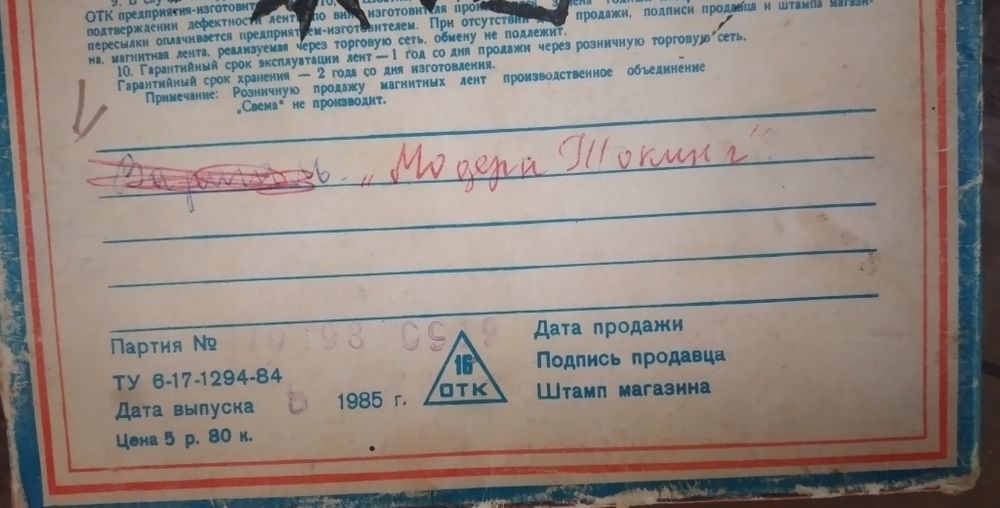 9. В слу
ОТК предприятия-изготовит
подтверждении дефектности лент по вине изготовителя
пересылки оплачивается предприятием-изготовителем. При отсутствии продажи, подписи продавца и штампа магази-
на, магнитная лента, реализуемая через торговую сеть, обмену не подлежит.
10. Гарантийный срок эксплуатации лент — 1 год со дня продажи через розничную торговую сеть.
Гарантийный срок хранения — 2 года со дня изготовления.
Примечание: Розничную продажу магнитных лент производственное объединение
„Свема" не производит.
„Модерн Токинг"
Партия №
ТУ 6-17-1294-84
Дата выпуска 1985 г.
Цена 5 р. 80 к.
16
ОТК
Дата продажи
Подпись продавца
Штамп магазина